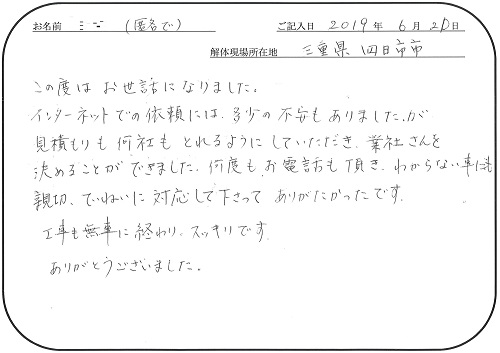 お名前 ミニ (匿名で) ご記入日 2019 年 6 月 20 日
解体現場所在地 三重県 四日市市
この度は お世話になりました。
インターネットでの依頼には、多少の不安もありました.が
見積もりも 何社も とれるようにしていただき、業社さんを
決めることができました. 何度も お電話も頂き、わからない事にも
親切、ていねいに 対応して下さって ありがたかったです.
工事も無事に終わり、スッキリです.
ありがとうございました.